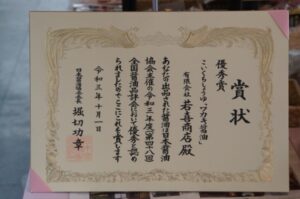 賞状
優秀賞
こいくちしょうゆ「ワカキ醤油」
有限会社 若喜商店 殿
あなたの出品された醤油は日本醤油
協会主催の令和三年度(第四十八回)
全国醤油品評会において優秀と認め
られましたのでここにこれを賞します
令和三年十月一日
日本醤油協会会長 堀切功章